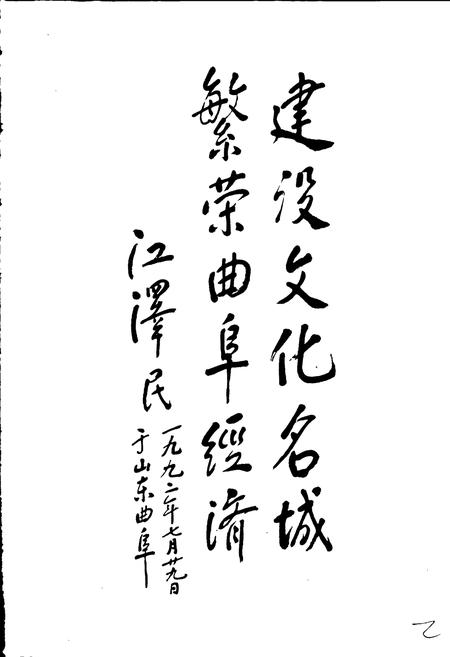 建设文化名城
繁荣曲阜經济
江澤民
一九九二年七月廿九日
于山东曲阜